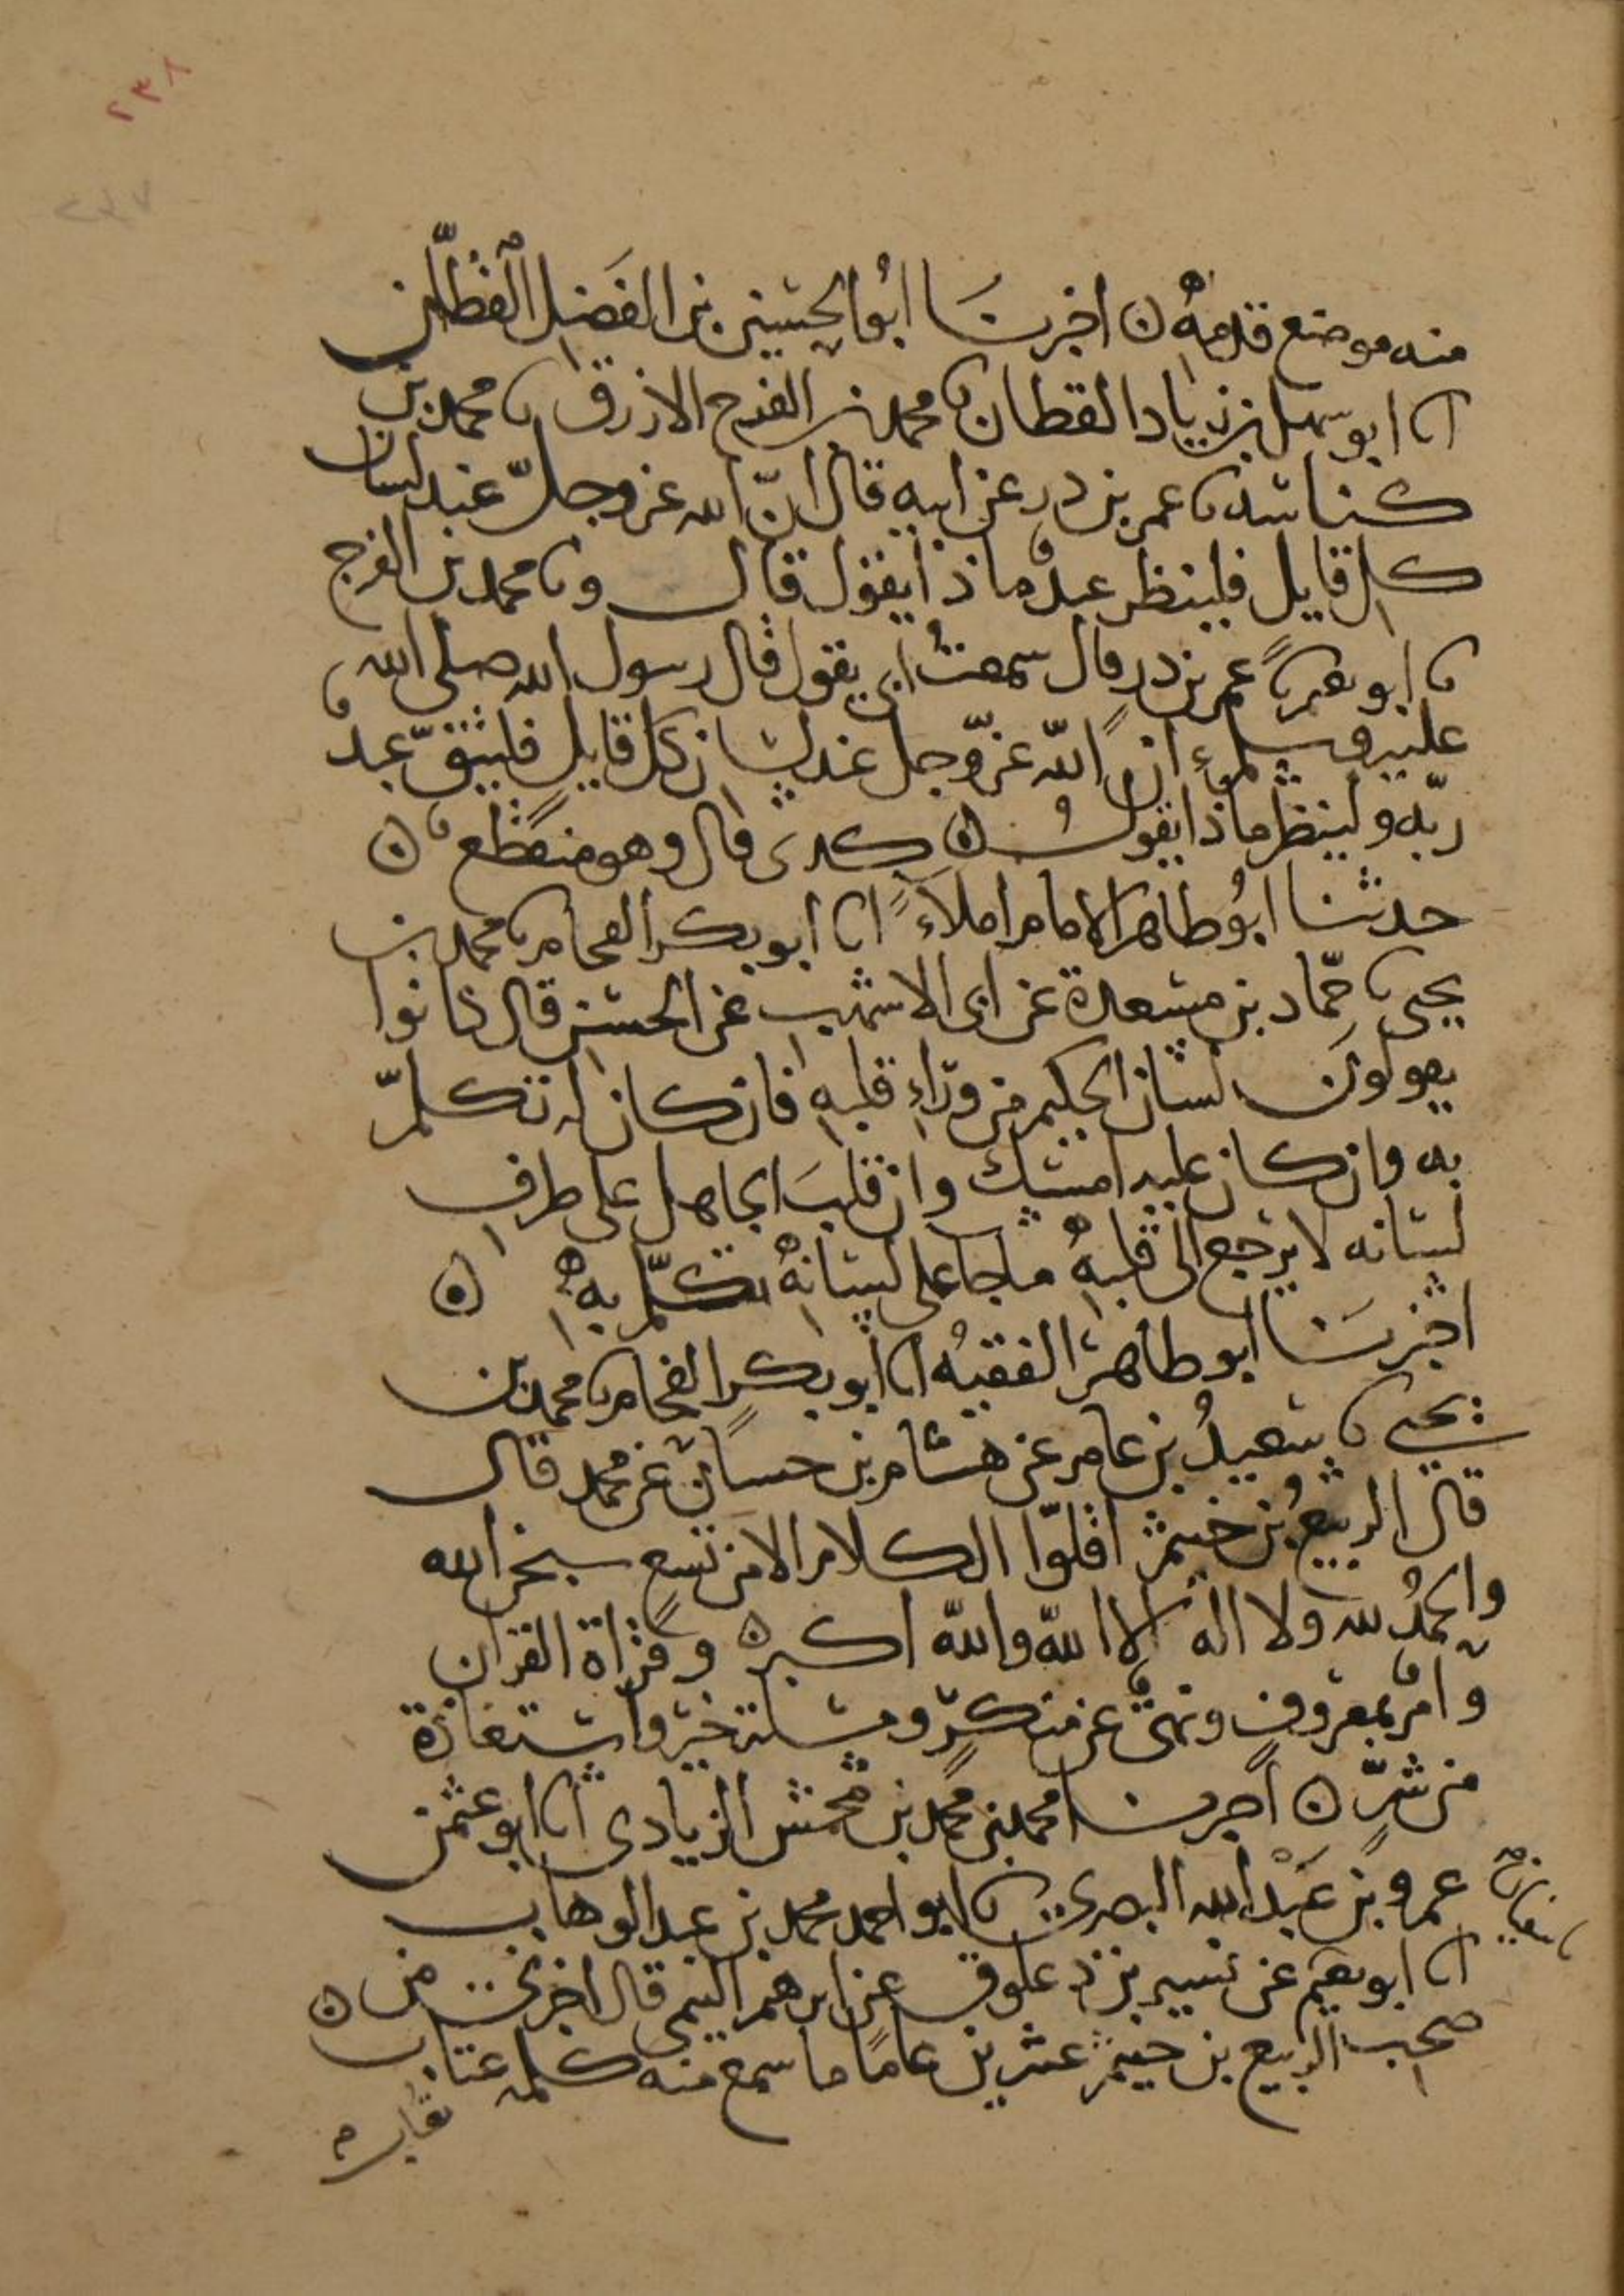 ٢٣٨
٢٣٧
منه موضع قدمه ن اخبرنا ابو الحسين بن الفضل القطان
انا ابو سهل بن زياد القطان نا محمد بن الفرج الازرق نا محمد بن
كناسه نا عمر بن ذر عن ابيه قال ان الله عز وجل عند لسان
كل قايل فلينظر عبد ماذا يقول قال ونا محمد بن الفرج
نا ابو نعيم نا عمر بن ذر قال سمعت ابي يقول قال رسول الله صلى الله
عليه وسلم ان الله عز وجل عند لسان كل قايل فليتق عبد
ربه ولينظر ماذا يقول ن كدى قال وهو منقطع ن
حدثنا ابو طاهر الامام املاء انا ابو بكر الفحام نا محمد بن
يحيى نا حماد بن مسعدة عن ابى الاشهب عن الحسن قال كانوا
يقولون لسان الحكيم من وراء قلبه فان كان له تكلم
به وان كان عليه امسك وان قلب الجاهل على طرف
لسانه لا يرجع الى قلبه ما جا على لسانه تكلم به ن
اخبرنا ابو طاهر الفقيه انا ابو بكر الفحام نا محمد بن
يحيى نا سعيد بن عامر عن هشام بن حسان عن محمد قال
قال الربيع بن خيثم اقلوا الكلام الا من تسع سبحن الله
والحمد لله ولا اله الا الله والله اكبر ن وقراة القران
وامر بمعروف ونهى عن منكر ومسلة خير واستعاذة
من شر ن اخبرنا محمد بن محمد بن محمش الزيادى انا ابو عثمن
عمرو بن عبد الله البصرى نا ابو احمد محمد بن عبد الوهاب
انا ابو نعيم عن نسير بن ذعلوق عن ابرهيم التيمى قال اخبرنى من
صحب الربيع بن خيثم عشرين عاما ما سمع منه كلمه عتاب ن